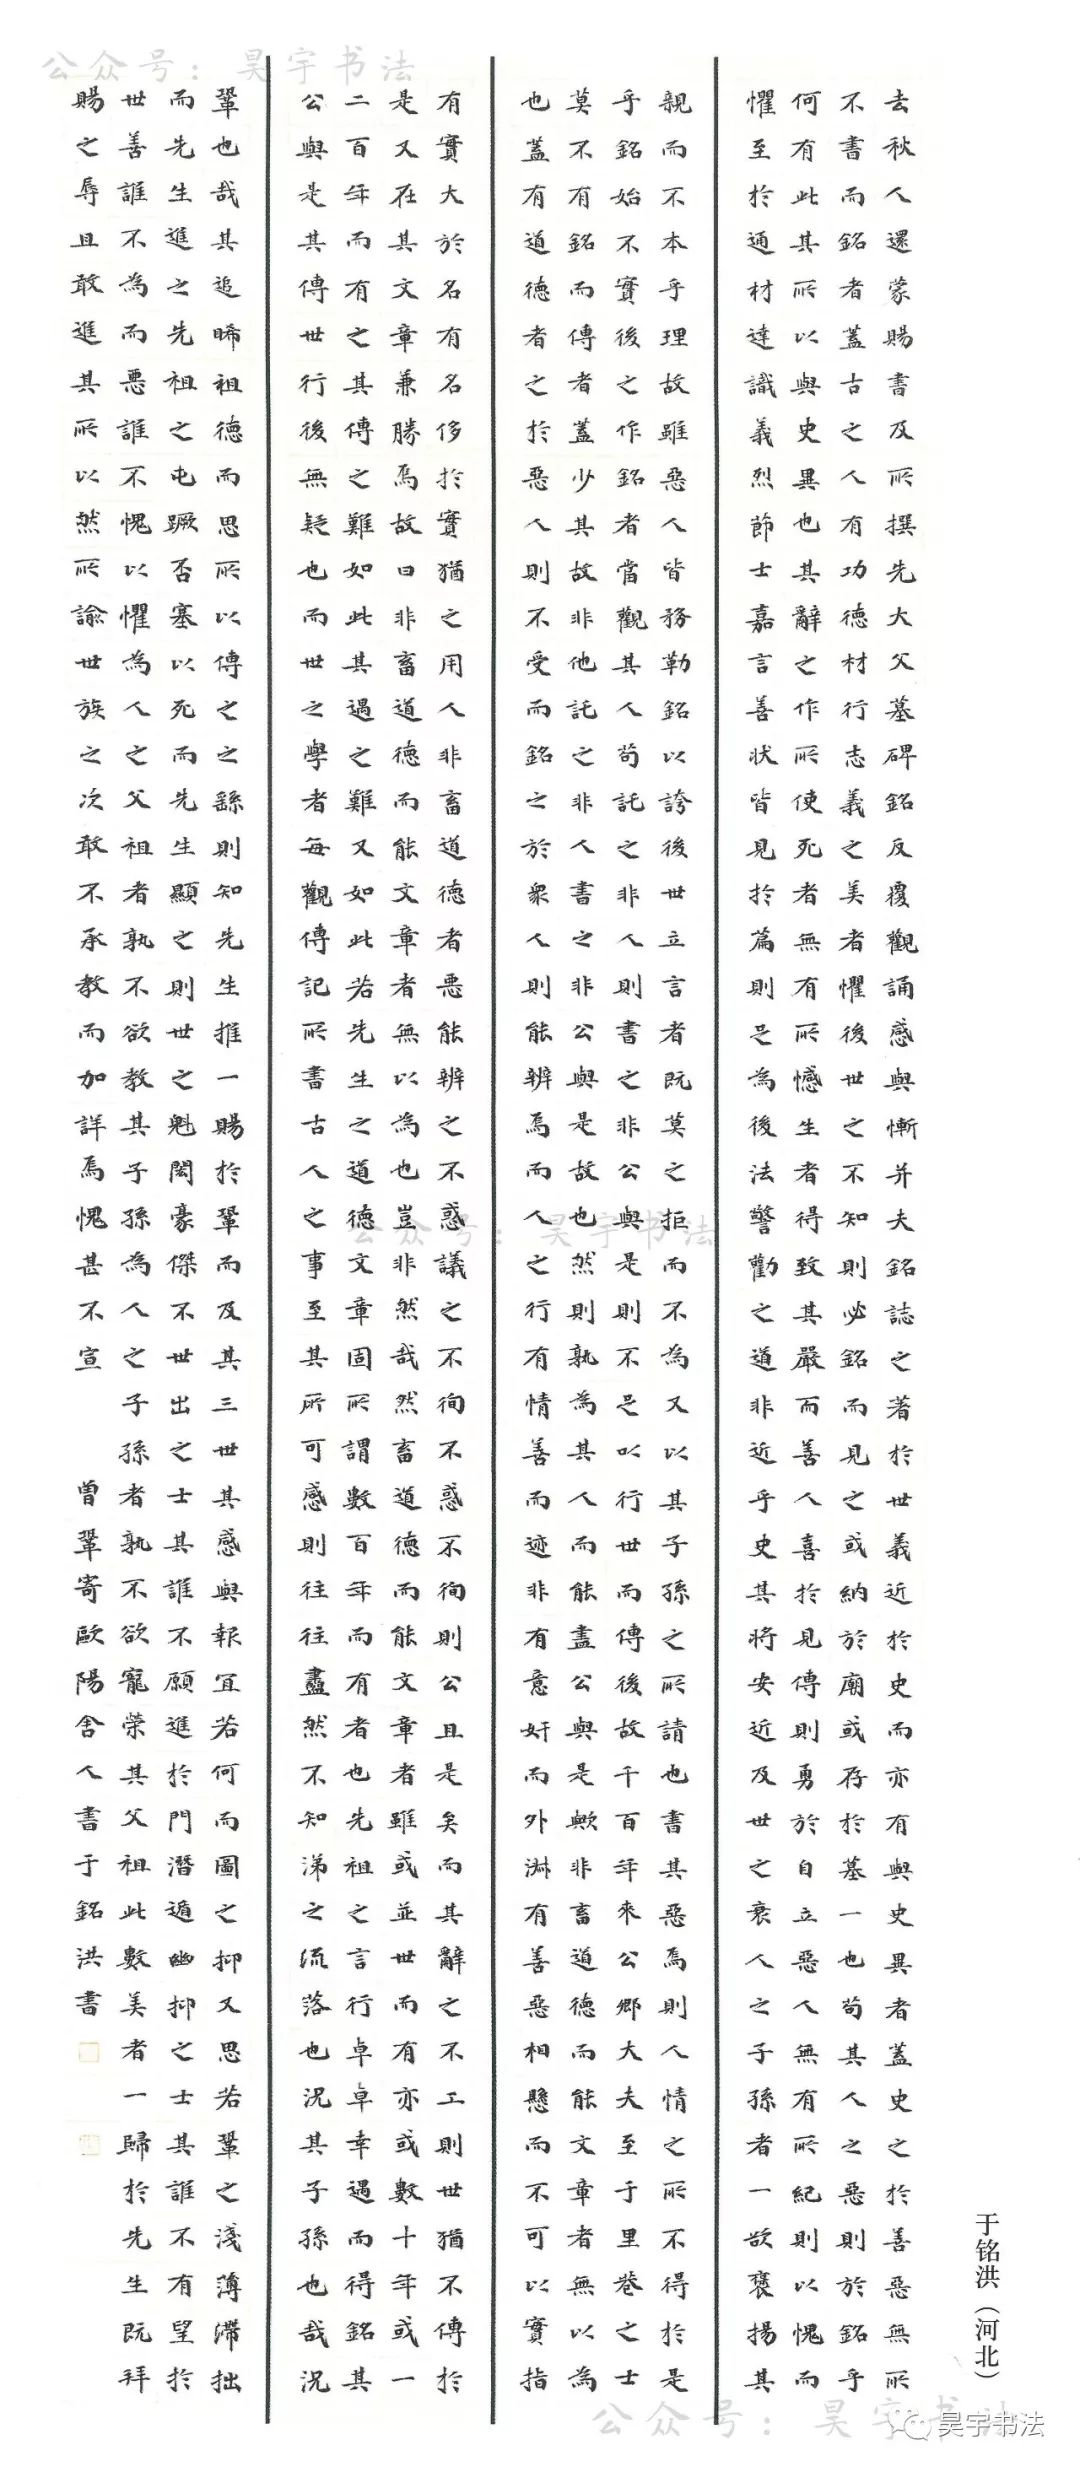 公众号：昊宇书法
去秋人還蒙賜書及所撰先大父墓碑銘反覆觀誦感與慚并夫銘誌之著於世義近於史而亦有與史異者蓋史之於善惡無所
不書而銘者蓋古之人有功德材行志義之美者懼後世之不知則必銘而見之或納於廟或存於墓一也苟其人之惡則於銘乎
何有此其所以與史異也其辭之作所使死者無有所憾生者得致其嚴而善人喜於見傳則勇於自立惡人無有所紀則以愧而
懼至於通材達識義烈節士嘉言善狀皆見於篇則足為後法警勸之道非近乎史其將安近及世之衰人之子孫者一欲褒揚其
親而不本乎理故雖惡人皆務勒銘以誇後世立言者既莫之拒而不為又以其子孫之所請也書其惡焉則人情之所不得於是
乎銘始不實後之作銘者當觀其人苟託之非人則書之非公與是則不足以行世而傳後故千百年來公卿大夫至于里巷之士
莫不有銘而傳者蓋少其故非他託之非人書之非公與是故也然則孰為其人而能盡公與是歟非畜道德而能文章者無以為
也蓋有道德者之於惡人則不受而銘之於衆人則能辨焉而人之行有情善而迹非有意奸而外淑有善惡相懸而不可以實指
有實大於名有名侈於實猶之用人非畜道德者惡能辨之不惑議之不徇不惑不徇則公且是矣而其辭之不工則世猶不傳於
是又在其文章兼勝焉故曰非畜道德而能文章者無以為也豈非然哉然畜道德而能文章者雖或並世而有亦或數十年或一
二百年而有之其傳之難如此其遇之難又如此若先生之道德文章固所謂數百年而有者也先祖之言行卓卓幸遇而得銘其
公與是其傳世行後無疑也而世之學者每觀傳記所書古人之事至其所可感則往往盡然不知涕之流落也況其子孫也哉況
鞏也哉其追睎祖德而思所以傳之之繇則知先生推一賜於鞏而及其三世其感與報宜若何而圖之抑又思若鞏之淺薄滯拙
而先生進之先祖之屯蹶否塞以死而先生顯之則世之魁閎豪傑不世出之士其誰不願進於門潛遁幽抑之士其誰不有望於
世善誰不為而惡誰不愧以懼為人之父祖者孰不欲教其子孫為人之子孫者孰不欲寵榮其父祖此數美者一歸於先生既拜
賜之辱且敢進其所以然所諭世族之次敢不承教而加詳焉愧甚不宣 曾鞏寄歐陽舍人書于銘洪書
于铭洪（河北）
公众号：昊宇书法
公众号：昊宇书法
昊宇书法